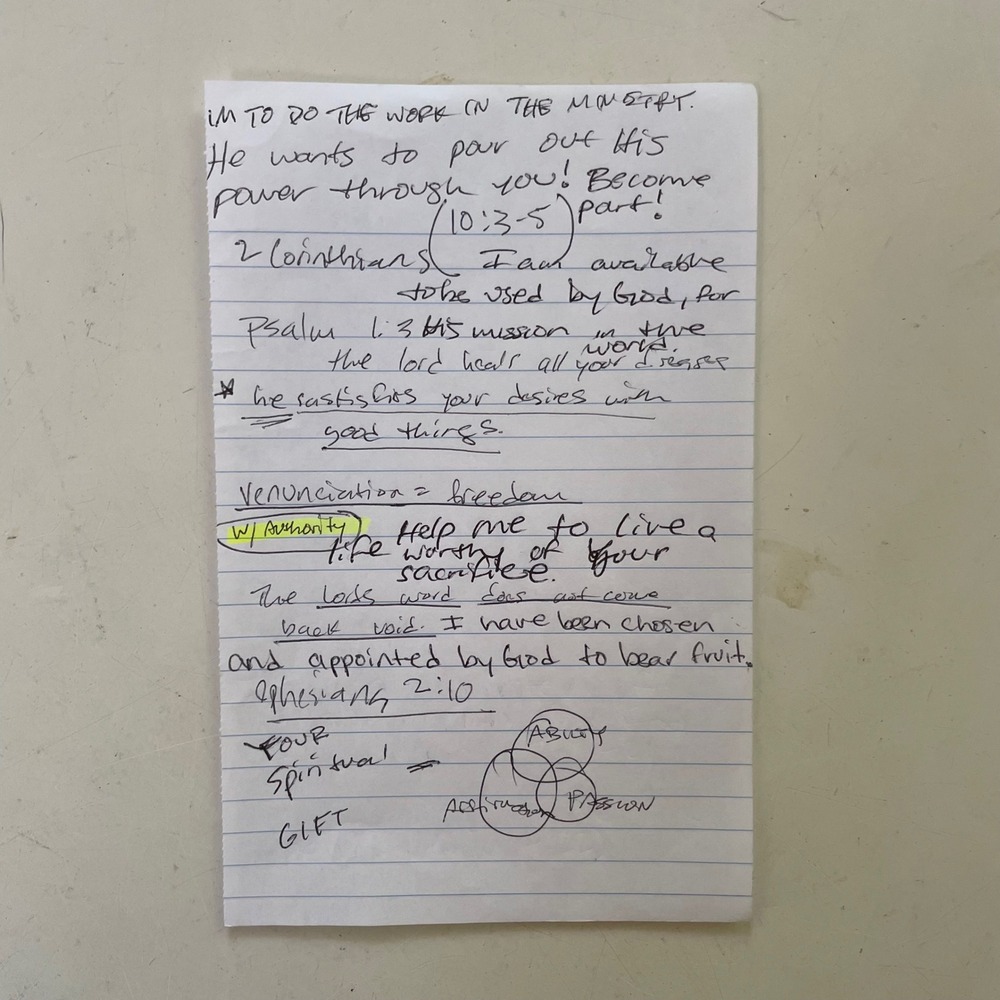 iM TO DO THE WORK IN THE MINISTRY.
He wants to pour out His
power through you! Become
part!
2 Corinthians (10:3-5)
I am available
to be used by God, for
Psalm 1:3 His mission in the
world.
the lord heals all your diseases
he sastisfies your desires with
good things.
renunciation = freedom
W/ Authority Help me to live a
life worthy of your
sacrifice.
The lords word does not come
back void. I have been chosen
and appointed by God to bear fruit.
Ephesians 2:10
YOUR
Spiritual =
GIFT
ABILITY
Affirmation PASSION